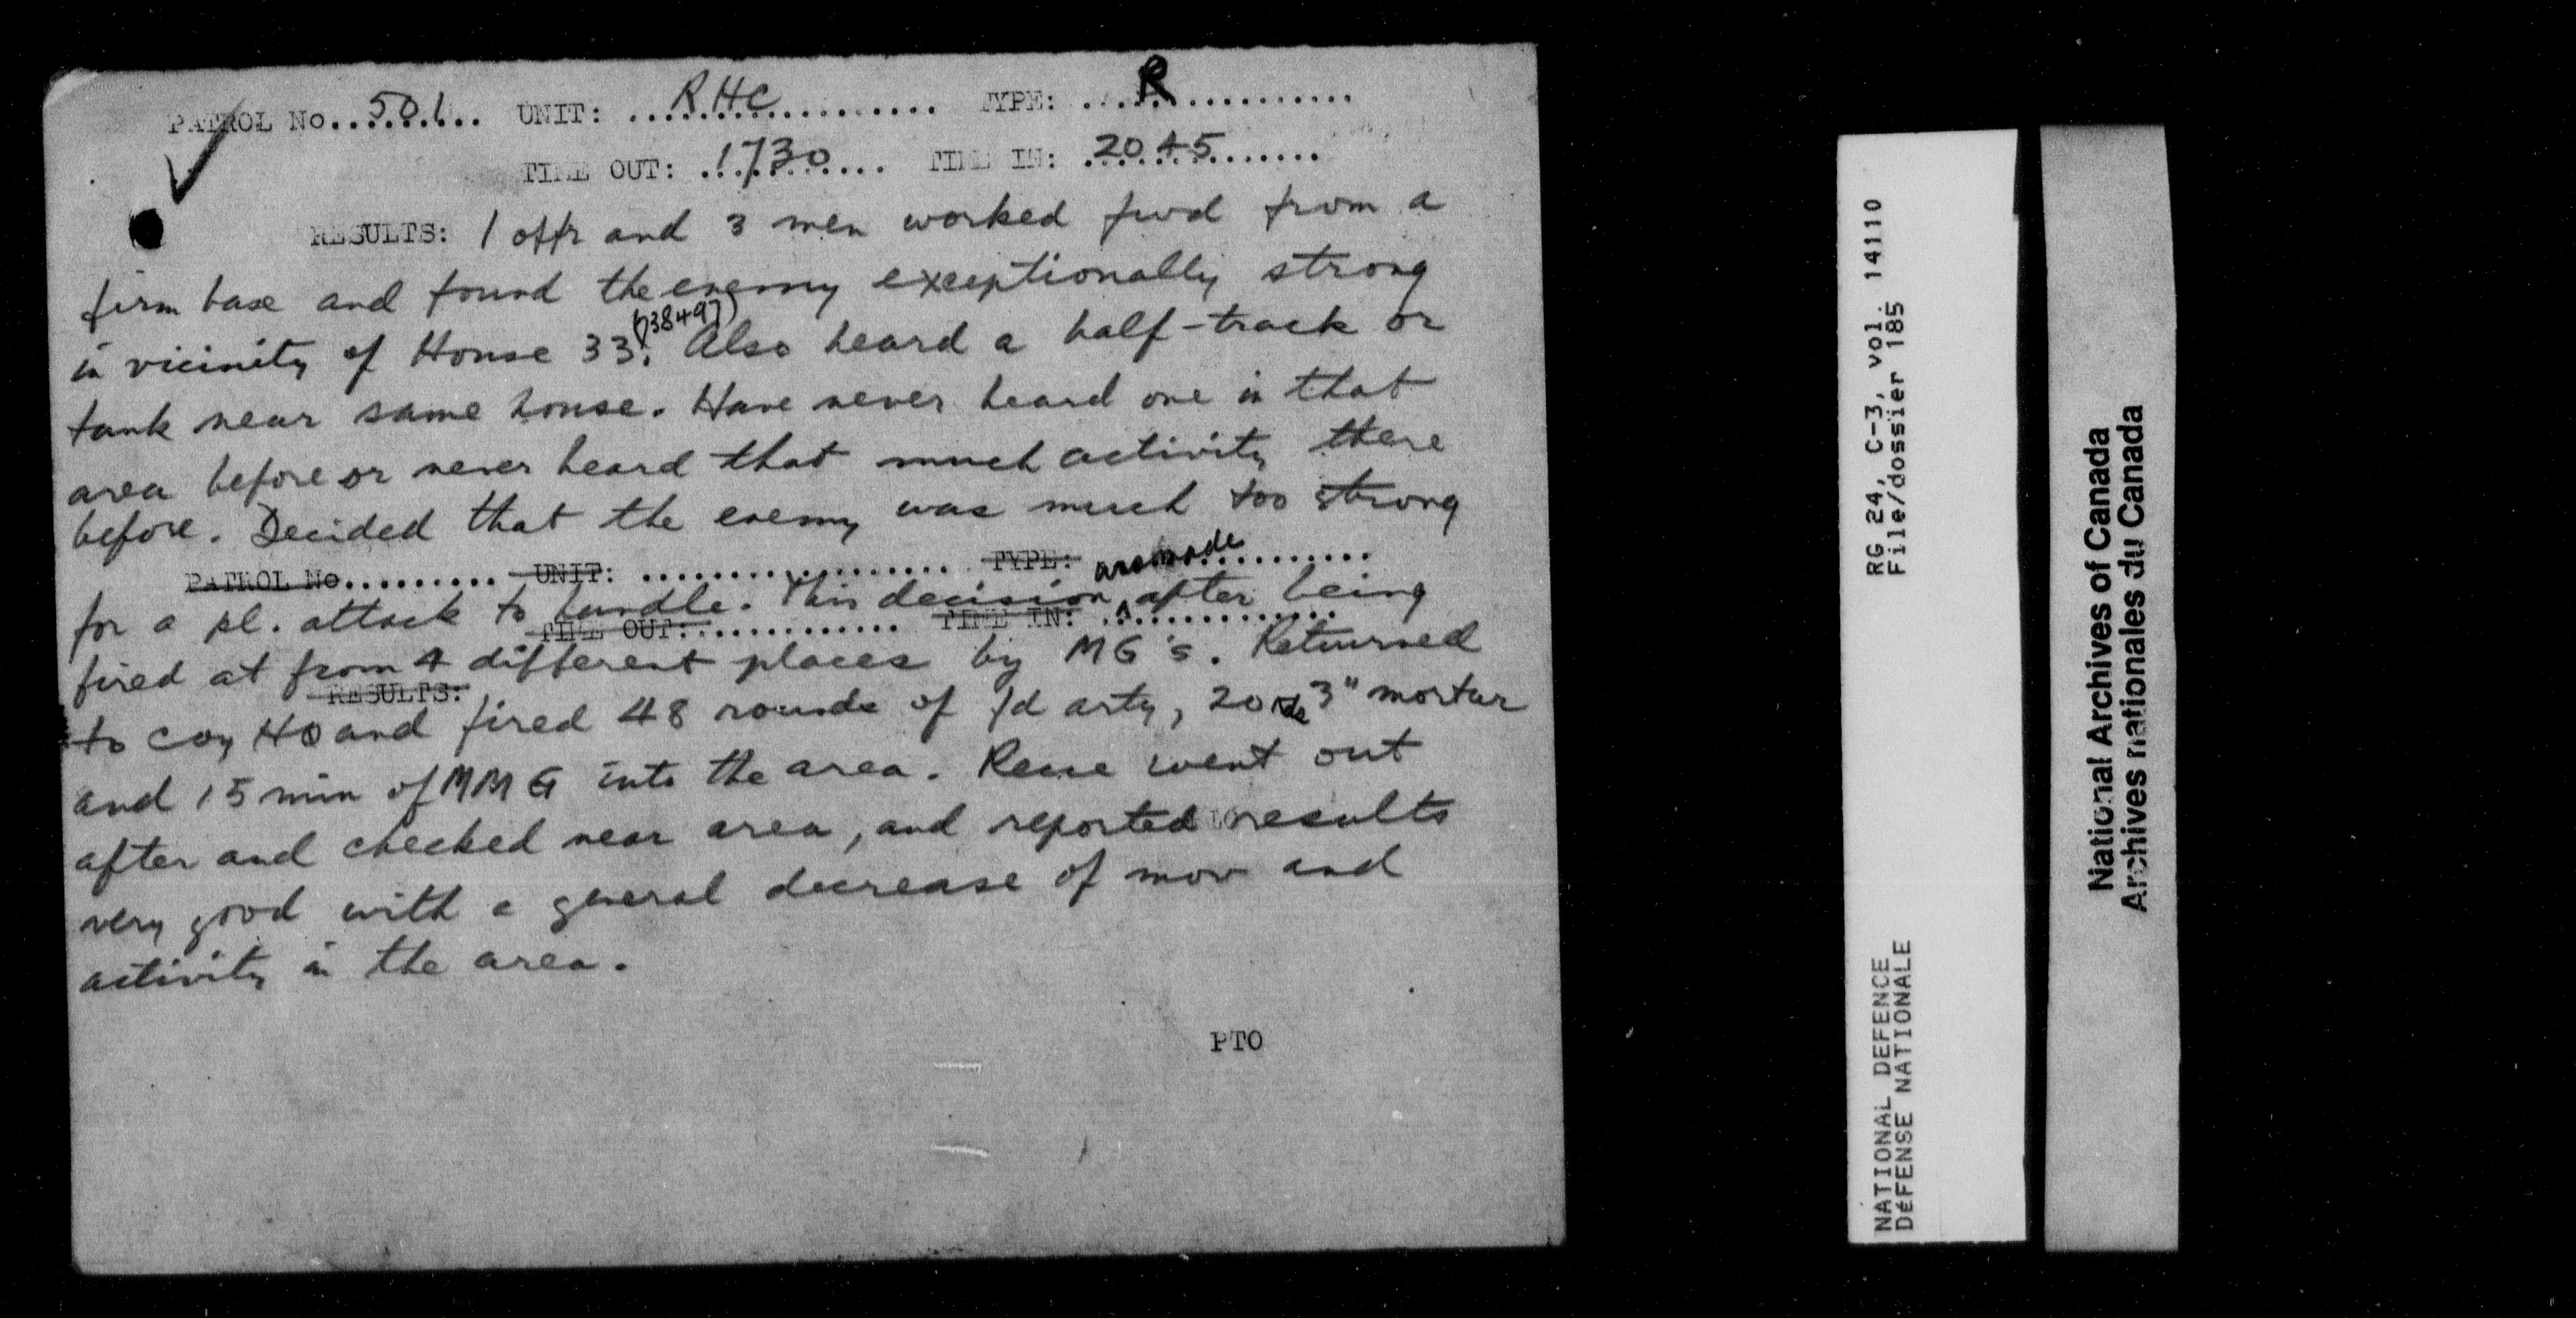 PATROL No..501.... UNIT: ...RHC............ TYPE: ....R............
TIME OUT: .1730....... TIME IN: 2045..........
RESULTS: 1 offr and 3 men worked fwd from a
firm base and found the enemy exceptionally strong
in vicinity of House 33 (738497). Also heard a half-track or
tank near same house. Have never heard one in that
area before or never heard that much activity there
before. Decided that the enemy was much too strong
PATROL No.......... UNIT: ................... TYPE: ..........
for a pl. attack to handle. This decision was made after being
TIME OUT: ............. TIME IN: ..............
fired at from 4 different places by MG's. Returned
RESULTS:
to coy HQ and fired 48 rounds of fd arty, 20 rds 3" mortar
and 15 min of MMG into the area. Recce went out
after and checked near area, and reported results
very good with a general decrease of mov and
activity in the area.
PTO
RG 24, C-3, vol. 14110
File/dossier 185
NATIONAL DEFENCE
DéFENSE NATIONALE
National Archives of Canada
Archives nationales du Canada